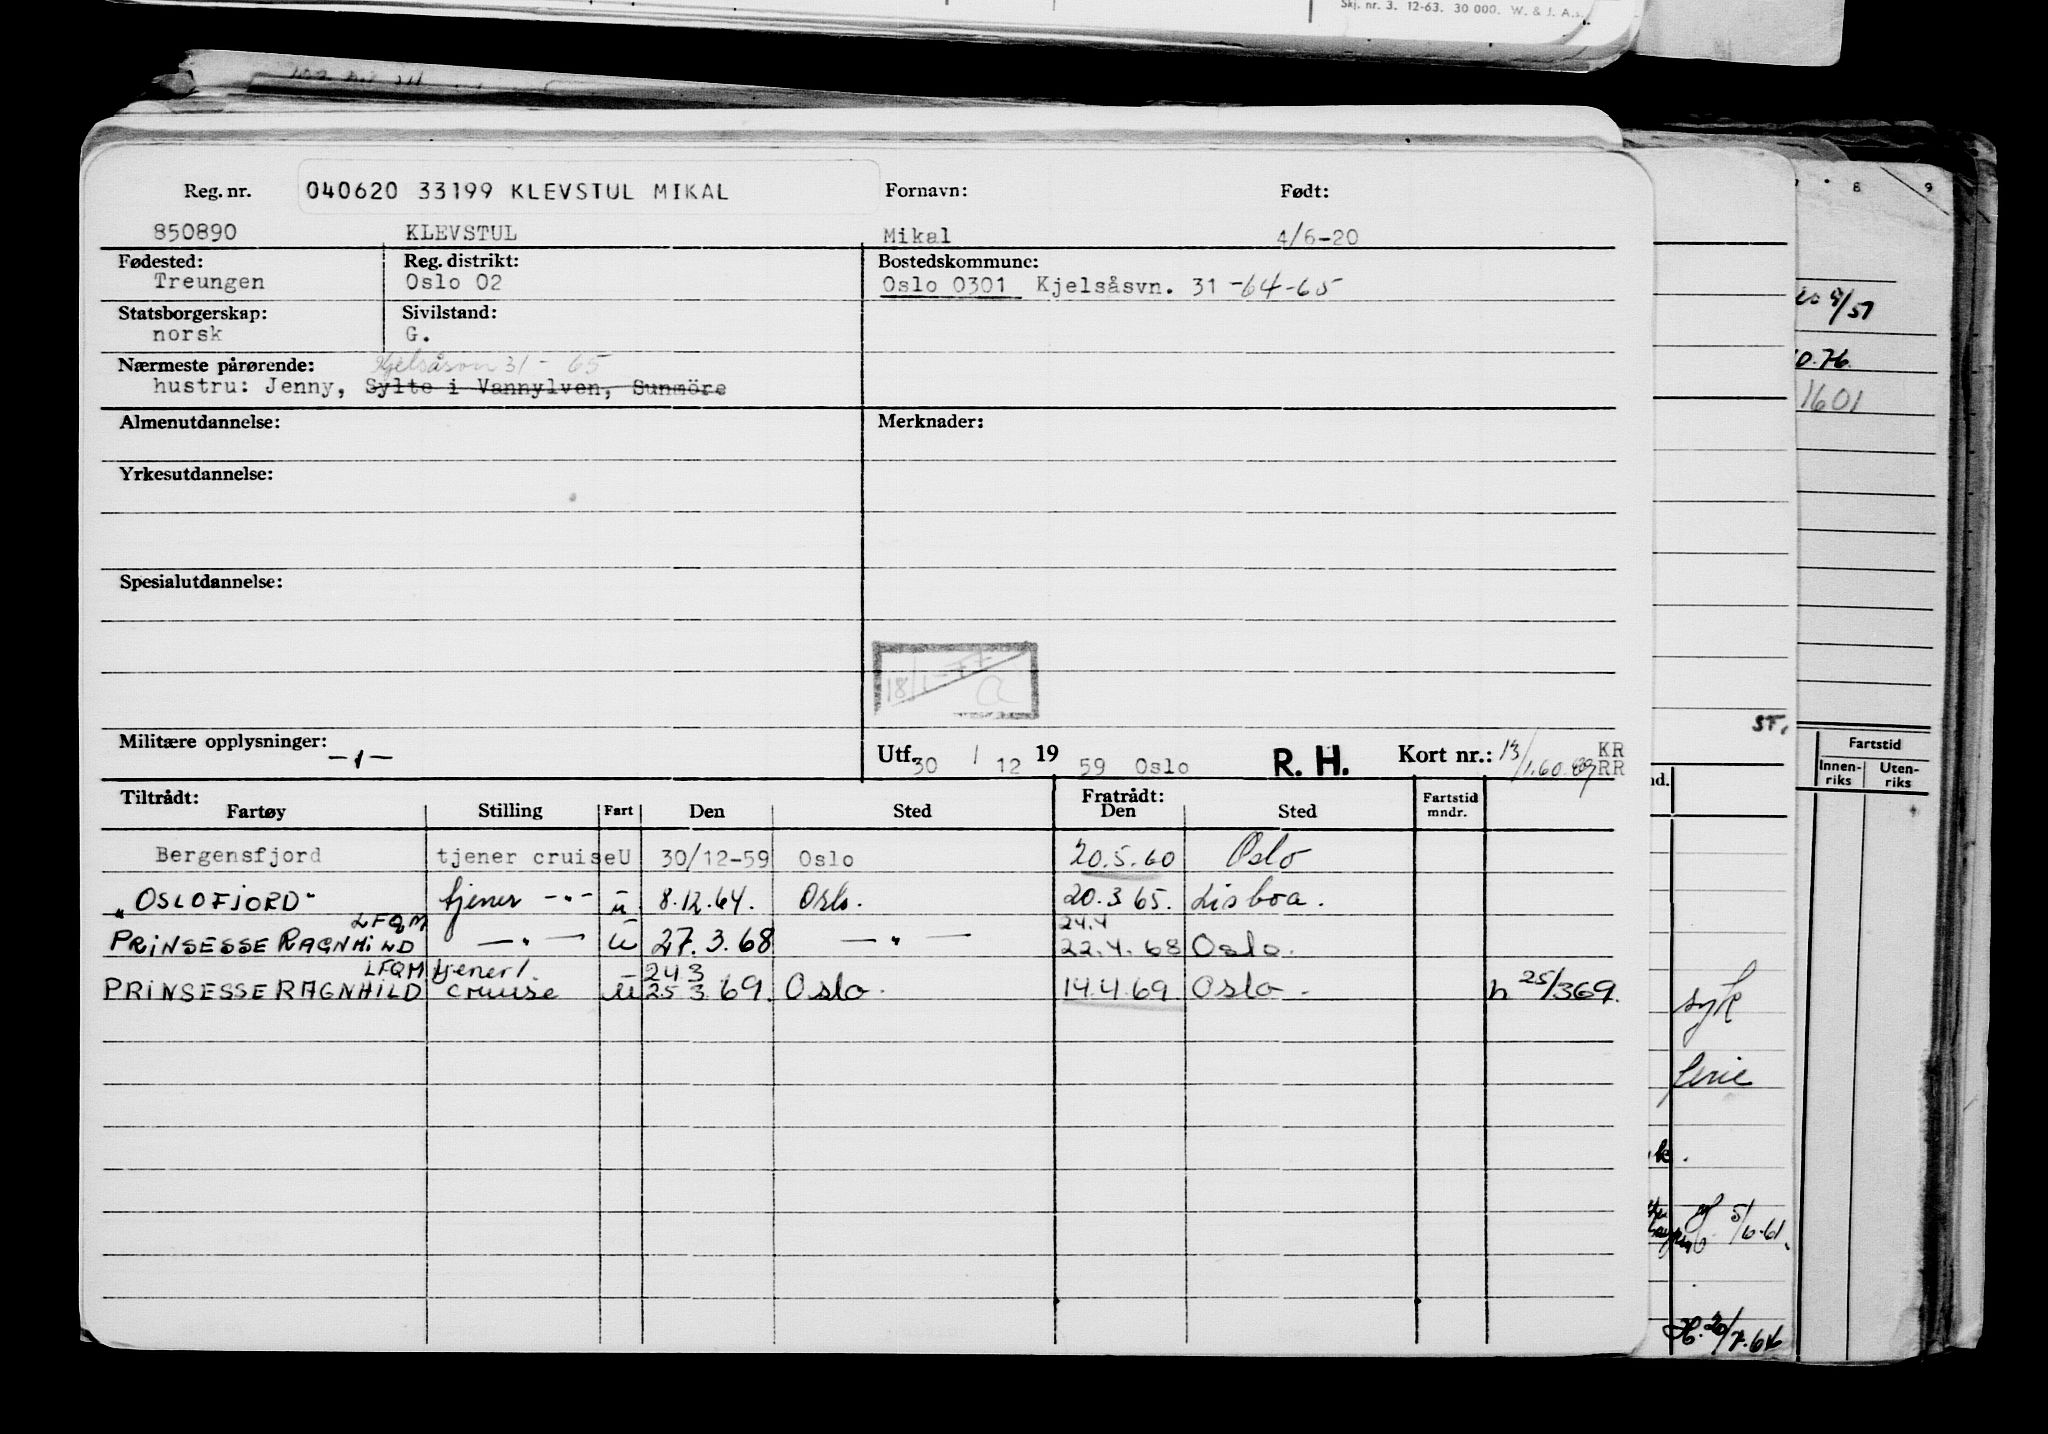 Skj. nr. 3. 12-63. 30 000. W. & J. A.s.
Reg. nr. 040620 33199 KLEVSTUL MIKAL Fornavn: Født:
850890 KLEVSTUL Mikal 4/6-20
Fødested: Reg. distrikt: Bostedskommune:
Treungen Oslo 02 Oslo 0301 Kjelsåsvn. 31 -64-65
Statsborgerskap: Sivilstand:
norsk G.
Nærmeste pårørende: Kjelsåsvn 31 - 65
hustru: Jenny, Sylte i Vannylven, Sunmöre
Almenutdannelse: Merknader:
Yrkesutdannelse:
Spesialutdannelse:
18/1-77
a
Militære opplysninger: -1- Utf. 30 / 12 19 59 Oslo R. H. Kort nr.: 13/1.60. KR RR
Tiltrådt: Fratrådt:
Fartøy Stilling Fart Den Sted Den Sted Fartstid mndr.
Bergensfjord tjener cruise U 30/12-59 Oslo 20.5.60 Oslo
"OSLOFJORD" tjener -"- u 8.12.64. Oslo. 20.3 65. Lisboa.
LFQM 24.4
PRINSESSE RAGNHILD -"- U 27.3.68 -"- 22.4.68 Oslo.
LFQM tjener/. 24.3
PRINSESSE RAGNHILD cruise u 25 3 69. Oslo. 14.4.69 Oslo. h 25/369.
8 9
5/51
10.76.
1601
ST.
Fartstid
Innen-riks Uten-riks
nd.
syk
ferie
5/6-61.
H. 20/7.64